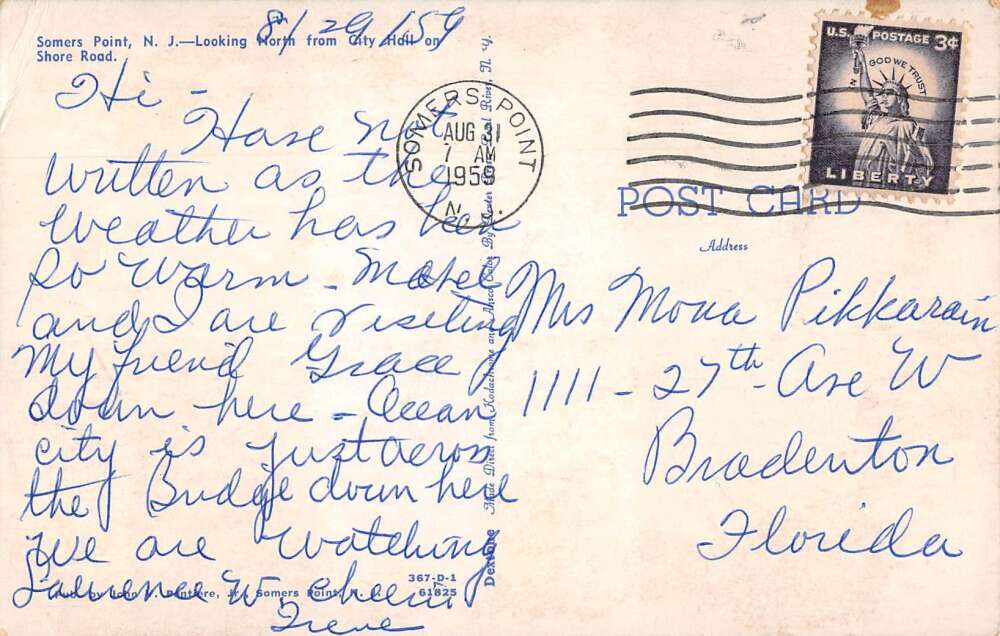 8/29/59
Somers Point, N. J.—Looking North from City Hall on
Shore Road.
Hi -
Have not
written as the
weather has been
so warm - Mabel
and I are visiting
my friend Grace
down here - Ocean
city is just across
the Bridge down here
We are watching
Lawrence W
Irene
367-D-1
61825
Pub. by John V. Bantiere, Jr., Somers Point, N. J.
Dexter
Made Direct from Kodachrome and Ansco Color By Dexter Press, Pearl River, N. Y.
SOMERS POINT
AUG 31
7 AM
1959
N. J.
U.S. POSTAGE 3¢
IN GOD WE TRUST
LIBERTY
POST CARD
Address
Mrs Mona Pikkarain
1111 - 27th - Ave W
Bradenton
Florida